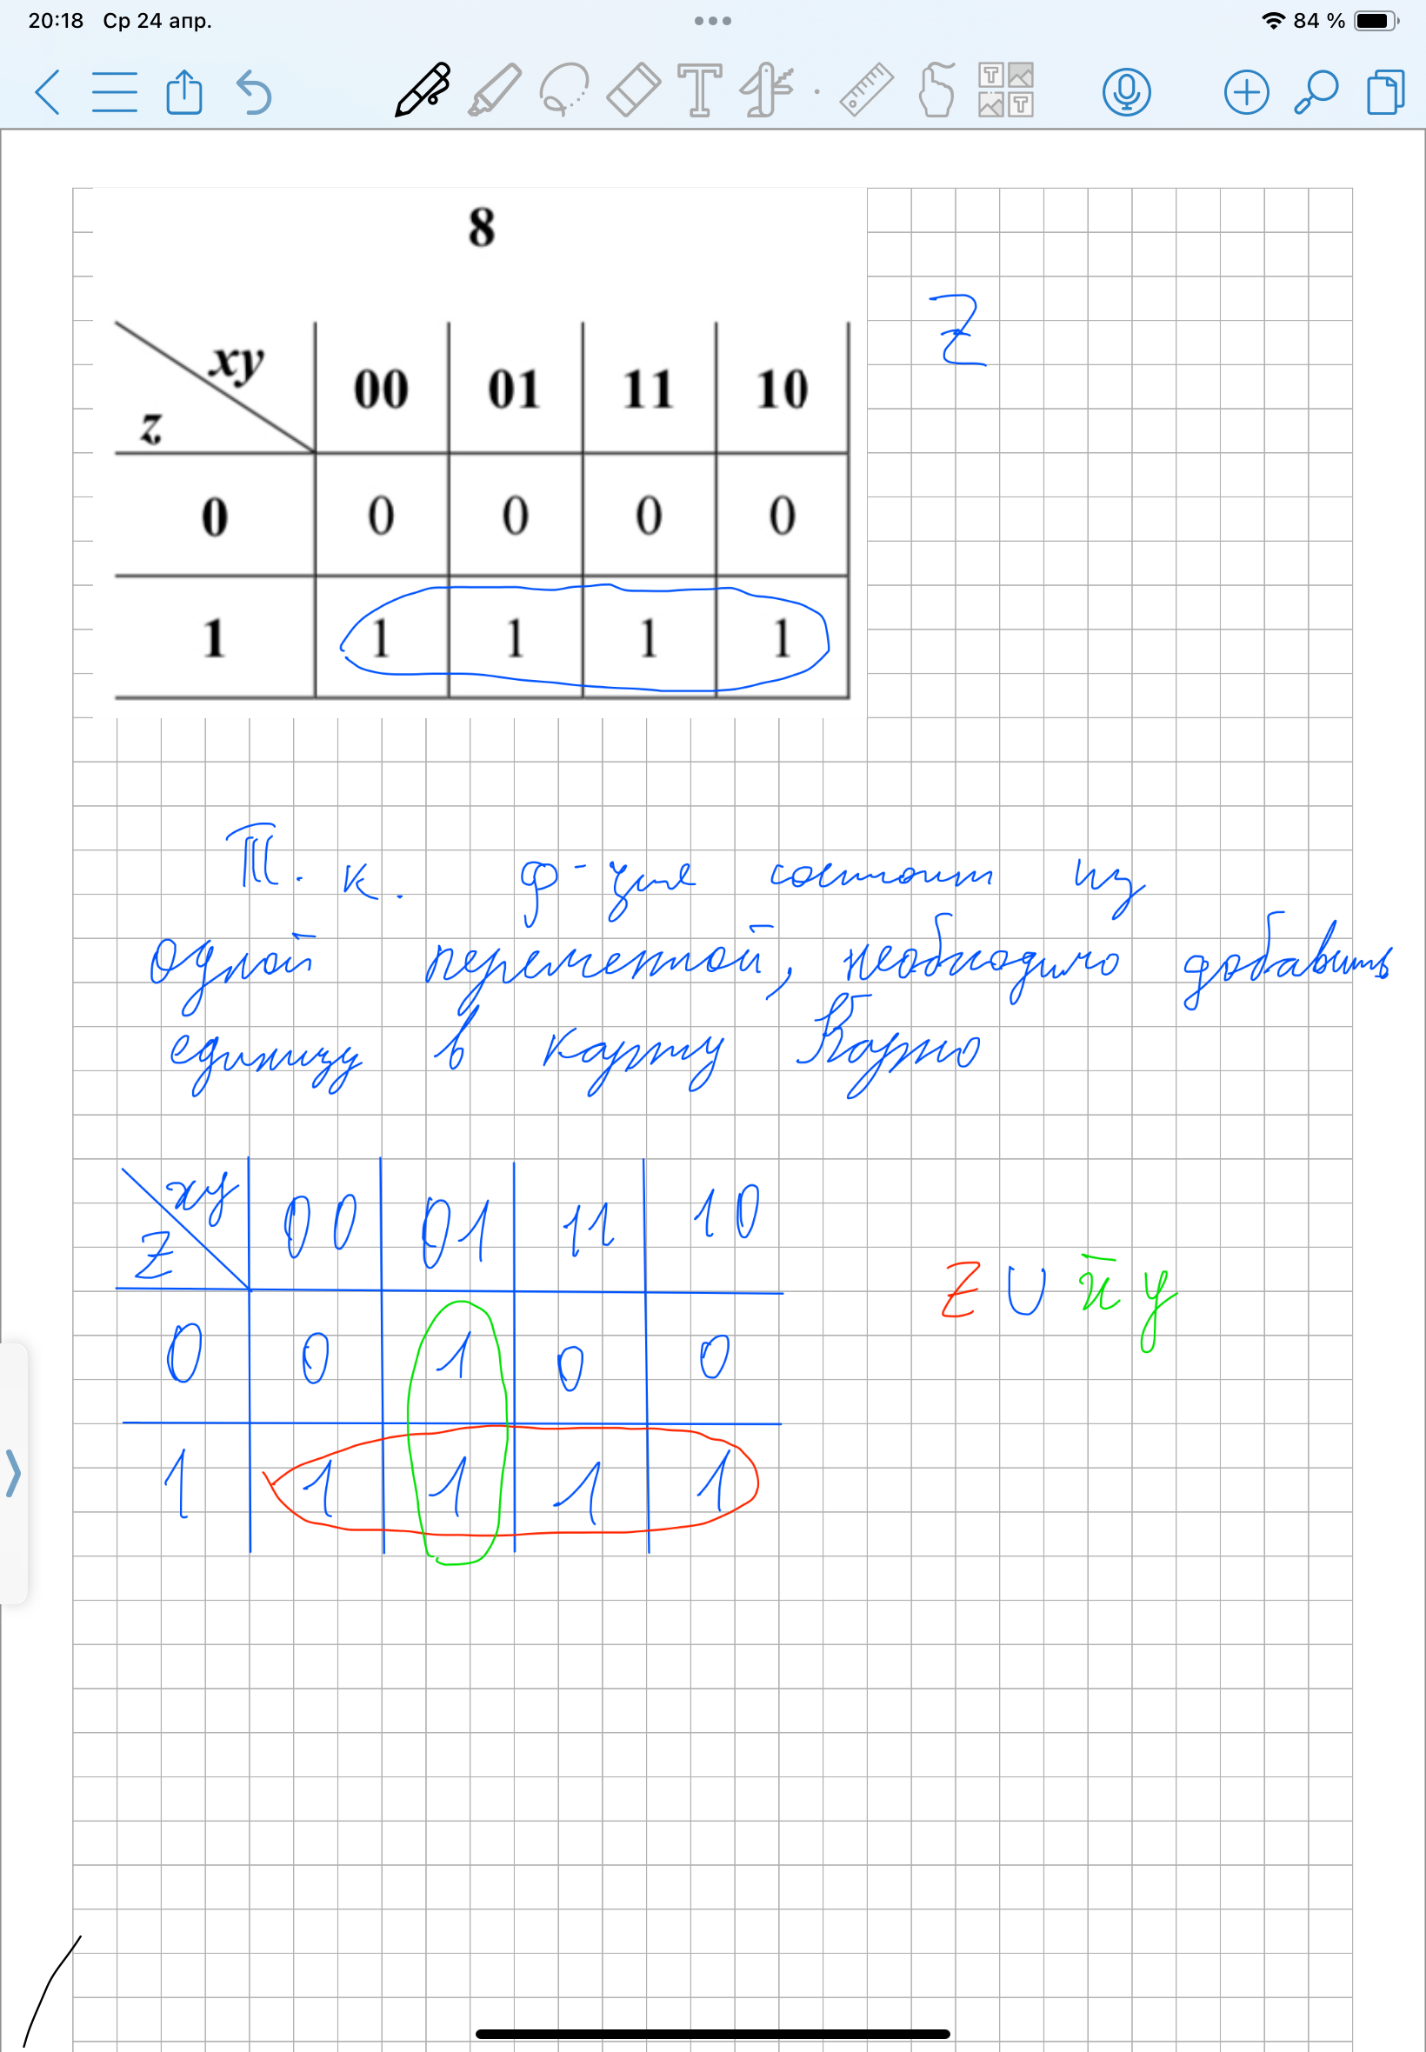 20:18 Ср 24 апр.
84 %
8
Z
xy 00 01 11 10
z
0 0 0 0 0
1 1 1 1 1
Т. к. ф-ция состоит из
одной переменной, необходимо добавить
единицу в карту Карно
xy 00 01 11 10
Z
0 0 1 0 0
1 1 1 1 1
Z ∪ x̄ y